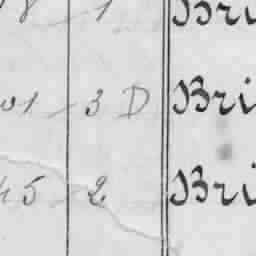 1 Bri
01 3 D Bri
45 2 Bri